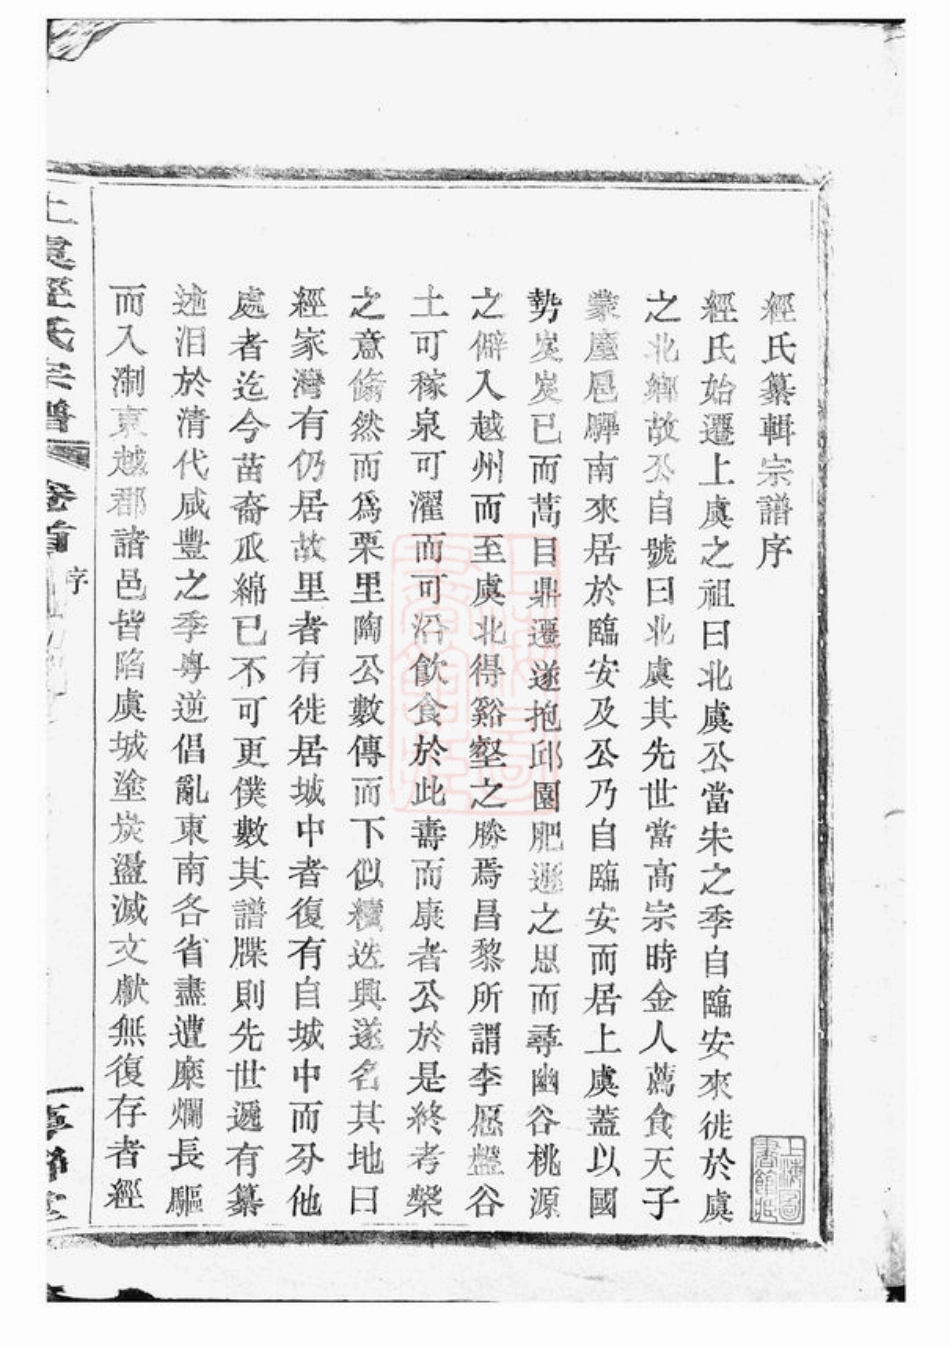 經氏纂輯宗譜序
經氏始遷上虞之祖曰北虞公當宋之季自臨安來徙於虞
之北鄉故公自號曰北虞其先世當高宗時金人薦食天子
蒙塵扈驆南來居於臨安及公乃自臨安而居上虞蓋以國
勢岌岌已而蒿目鼎遷遂抱邱園肥遯之思而尋幽谷桃源
之僻入越州而至虞北得谿壑之勝焉昌黎所謂李愿盤谷
土可稼泉可濯而可沿飲食於此壽而康者公於是終考槃
之意翛然而爲栗里陶公數傳而下似續迭興遂名其地曰
經家灣有仍居故里者有徙居城中者復有自城中而分他
處者迄今苗裔瓜綿已不可更僕數其譜牒則先世遞有纂
述汨於清代咸豐之季粤逆倡亂東南各省盡遭糜爛長驅
而入淛東越郡諸邑皆陷虞城塗炭盪滅文獻無復存者經
上虞經氏宗譜
卷首
序
一
上海圖書館藏